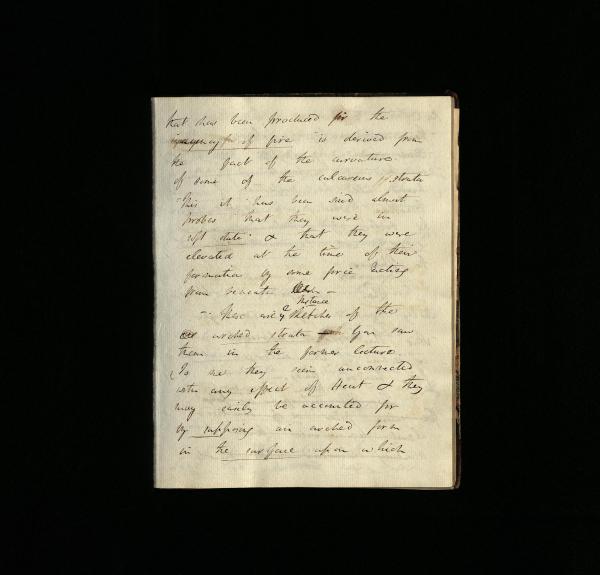 that has been produced for the
agency of fire is derived from
the fact of the curvature
of some of the calcareous strata
This it has been said almost
proves that they were in
soft state & that they were
elevated at the time of their
formation by some force acting
from beneath
Instance
There are 2 Sketches of the
arched strata You saw
them in the former lecture
To me they seem unconnected
with any effect of Heat & they
may easily be accounted for
by supposing an arched form
in the surface upon which